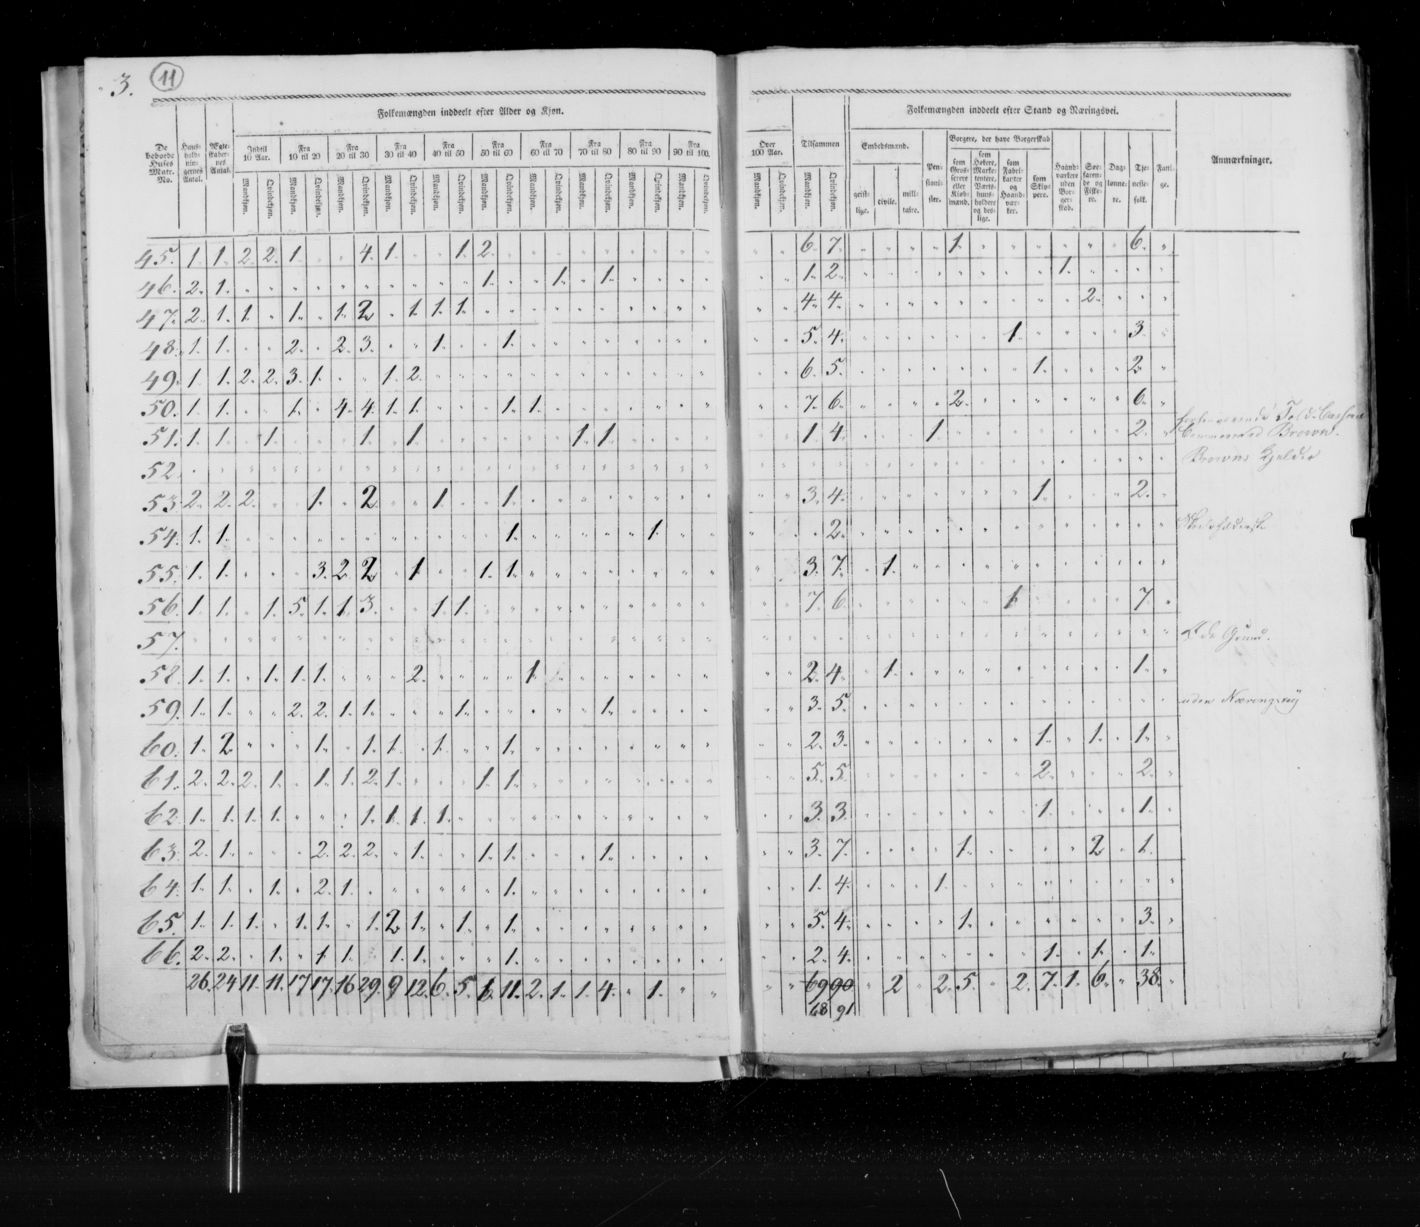 3. 11
Folkemængden inddeelt efter Alder og Kjøn.
Folkemængden inddeelt efter Stand og Næringsvei.
De beboede Huses Matr. No.
Huusholdningernes Antal.
Indtil 10 Aar.
Fra 10 til 20
Fra 20 til 30
Fra 30 til 40
Fra 40 til 50
Fra 50 til 60
Fra 60 til 70
Fra 70 til 80
Fra 80 til 90
Fra 90 til 100.
Over 100 Aar.
Tilsammen
Mandkjøn. Qvindekjøn.
Embedsmænd.
geistlige. civile. militaire.
Pensionister.
Borgere, der have Borgerskab
som Grosserere eller Kjøbmænd.
som Fabrikanter og Haandværker.
som Skippere.
Haandværkere uden Borgerskab.
Søefarende og Fiskere.
Daglønnere.
Tjenestefolk.
Fattige.
Anmærkninger.
45. 1. 1. 2. 2. 1. 4. 1. 1. 2. 6. 7. 1. 6.
46. 2. 1. 1. 1. 1. 1. 2. 1.
47. 2. 1. 1. 1. 1. 2. 1. 1. 1. 4. 4. 2.
48. 1. 1. 2. 2. 3. 1. 1. 5. 4. 1. 3.
49. 1. 1. 2. 2. 3. 1. 1. 2. 6. 5. 1. 2.
50. 1. 1. 1. 4. 4. 1. 1. 1. 1. 7. 6. 2. 6.
51. 1. 1. 1. 1. 1. 1. 1. 1. 4. 1 2. Brown.
52. Browns
53. 2. 2. 2. 1. 2. 1. 1. 3. 4. 1. 2.
54. 1. 1. 1. 1. 2.
55. 1. 1. 3. 2. 2. 1. 1. 1. 3. 7. 1.
56. 1. 1. 1. 5. 1. 1. 3. 1. 1. 7. 6. 1. 7.
57. øde Grund.
58. 1. 1. 1. 1. 1. 2. 1. 2. 4. 1. 1.
59. 1. 1. 2. 2. 1. 1. 1. 1. 3. 5. uden Næringsvej
60. 1. 2. 1. 1. 1. 1. 1. 2. 3. 1. 1. 1.
61. 2. 2. 2. 1. 1. 1. 2. 1. 1. 1. 5. 5. 2. 2.
62. 1. 1. 1. 1. 1. 1. 1. 1. 3. 3. 1. 1.
63. 2. 1. 2. 2. 2. 1. 1. 1. 1. 3. 7. 1. 2. 1.
64. 1. 1. 1. 2. 1. 1. 1. 4. 1.
65. 1. 1. 1. 1. 1. 1. 2. 1. 1. 1. 5. 4. 1. 3.
66. 2. 2. 1. 1. 1. 1. 1. 1. 2. 4. 1. 1. 1.
26. 24. 11. 11. 17. 17. 16. 29. 9. 12. 6. 5. 11. 2. 1. 1. 4. 1. 69 90 2 2. 5. 2. 7. 1. 6. 38.
68 91